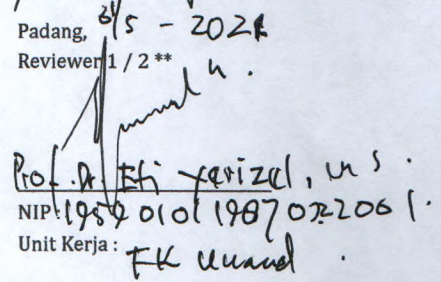 Padang, 31/5 - 2021
Reviewer 1 / 2 **
Prof. Dr. Eti Yerizel, MS.
NIP : 19590101 198703 2 2001.
Unit Kerja : FK Unand.